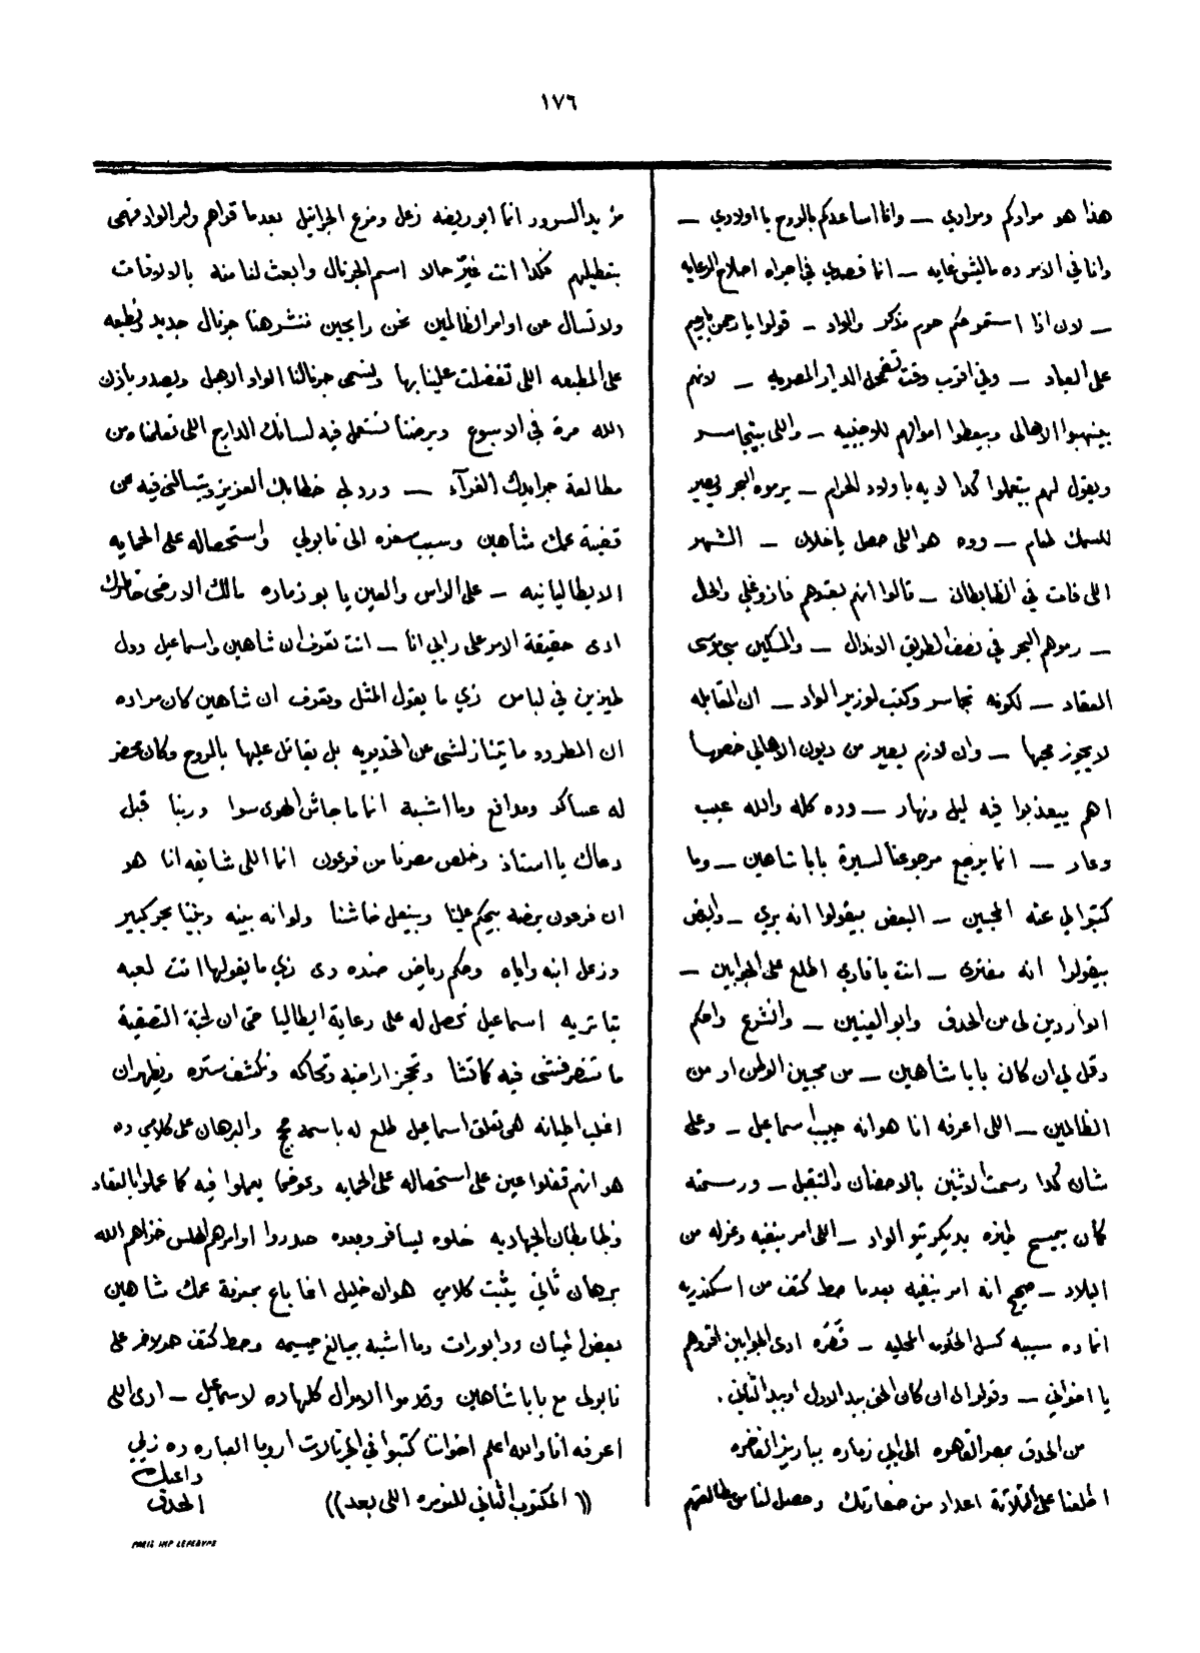 ١٧٦
هذا هو مرادكم ومرادي — وانا اساعدكم بالروح يا اولادي —
وانا في الامر ده ماليش غايه — انما قصدي في اجراه اصلاح الرعايه
— لان اذا استمر حكم حزم مذكر والواد — قولوا يا رحمن يا رحيم
على العباد — وفي اقرب وقت تضمحل الديار المصريه — لانهم
بينهبوا الاهالى ويعطوا اموالهم للاجنبيه — واللى يتجاسر
ويقول لهم بتعملوا كدا لايه يا ولاد الحرام — يرموه البحر يصير
للسمك طعام — وده هو اللى حصل ياخلان — الشهر
اللى فات في الظابطان — قالوا انهم بعتوهم فازوغلي والحال
— رموهم البحر في نصف الطريق الاندال — والمسكين سي موسى
العقاد — لكونه تجاسر وكتب لوزير الواد — ان المقابله
لا يجوز محيها — وان لازم يصير من ديون الاهالي خصمها
اهم بيعذبوا فيه ليل ونهار — وده كله والله عيب
وعار — انما يرجع مرجوعنا لسيرة بابا شاهين — وما
كتبوا لي عنه المحبين — البعض بيقولوا انه بري — والبعض
بيقولوا انه مفترى — انت يا قاري اطلع على الجوابين —
الواردين لى من الحدق وابو العينين — والشرع واحكم
وقل لي ان كان بابا شاهين — من محبين الوطن او من
الظالمين — اللى اعرفه انا هو انه حبيب اسماعيل — وعلى
شان كدا رسمت الاثنين بالاحضان والتقبيل — ورسمته
كان بيمسح طيزه بديكريتو الواد — اللى امر بنفيه وعزله من
البلاد — صحيح انه امر بنفيه بعدما حط كتف من اسكندريه
انما ده سببه كسل الحكومه المحليه — قصره ادى الجوابين اقروهم
يا اخواني — وقولوا لى ان كان الحق بيد الاول او بيد الثاني .
من الحدق بمصر القاهره الى ابي زماره بباريز الفاخره
اطلعنا على الثلاثة اعداد من صفارتك وحصل لنا من مطالعتهم
مزيد السرور انما ابو ريضه زعل ومنع الجرانيل بعدما قراهم وامر الواد فهمى
بتعطيلهم فكدا انت غيّر حالا اسم الجرنال وابعث لنا منه بالالوفات
ولا تسال عن اوامر الظالمين نحن رايحين ننشر هنا جرنال جديد ونطبعه
على المطبعه اللى تفضلت علينا بها ويسمى جرنالنا الواد الاهبل ويصدر باذن
الله مرة في الاسبوع وبرضنا نستعمل فيه لسانك الدارج اللى تعلمناه من
مطالعة جرايدك الغرآء — ورد لي خطابك العزيز وبتسالنى فيه عن
قضية عمك شاهين وسبب سفره الى نابولي واستحصاله على الحمايه
الايطاليانيه — على الراس والعين يا بو زماره مالك الا رضى خاطرك
ادى حقيقة الامر على رايي انا — انت تعرف ان شاهين واسماعيل دول
طيزين في لباس زي ما يقول المثل وتعرف ان شاهين كان مراده
ان المطرود ما يتنازلشي عن الخديويه بل يقاتل عليها بالروح وكان محضر
له عساكر ومدافع وما اشبه انما ما جاش الهوى سوا وربنا قبل
دعاك يا استاذ وخلص مصرنا من فرعون انما اللى شايفه انا هو
ان فرعون برضه بيحكم علينا وبينعل خاشنا ولو انه بينه وبيننا بحر كبير
وزعل ابنه واياه وحكم رياض ضده دى زي ما يقولها انت لعبه
تياتريه اسماعيل تحصل له على رعاية ايطاليا حتى ان لجنة التصفية
ما تنضرفشى فيه كاتشا وتحجز اراضيه وتحاكمه وتكشف ستره ويظهر ان
اغلب اطيانه هى تعلق اسماعيل طلع له باسمه حجج والبرهان على كلامي ده
هو انهم قفلوا عين على استحصاله على الحمايه وعوضما يعملوا فيه كما عملوا بالعقاد
وظابطان الجهاديه خلوه يسافر وبعده صدروا اوامرهم الملس خزاهم الله
برهان ثاني يثبت كلامي هو ان خليل اغا باع بمعرفة عمك شاهين
بعض اطيان ووابورات وما اشبه بمبالغ جسيمه وحط كتف هو لاخر على
نابولى مع بابا شاهين وقدموا الاموال كلها ده لاسماعيل — ادى اللى
اعرفه انا والله اعلم اخواتنا كتبوا في الجرنالات اروبا العباره ده زي
داعيك
الحدق
(( المكتوب الثاني للنومره اللى بعد ))
PARIS IMP LEFEBVRE